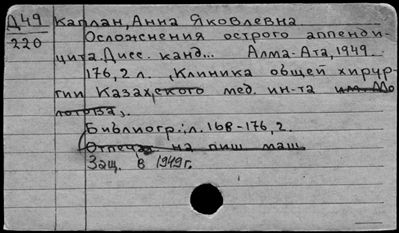 Д49 Каплан, Анна Яковлевна.
220 Осложнения острого аппенди-
цита. Дисс. канд... Алма-Ата, 1949.
176, 2 л. (Клиника общей хирур-
гии Казахского мед. ин-та им. Мо
лотова).
Библиогр.: л. 168-176, 2.
Отпеч. на пиш. маш.
Защ. в 1949 г.